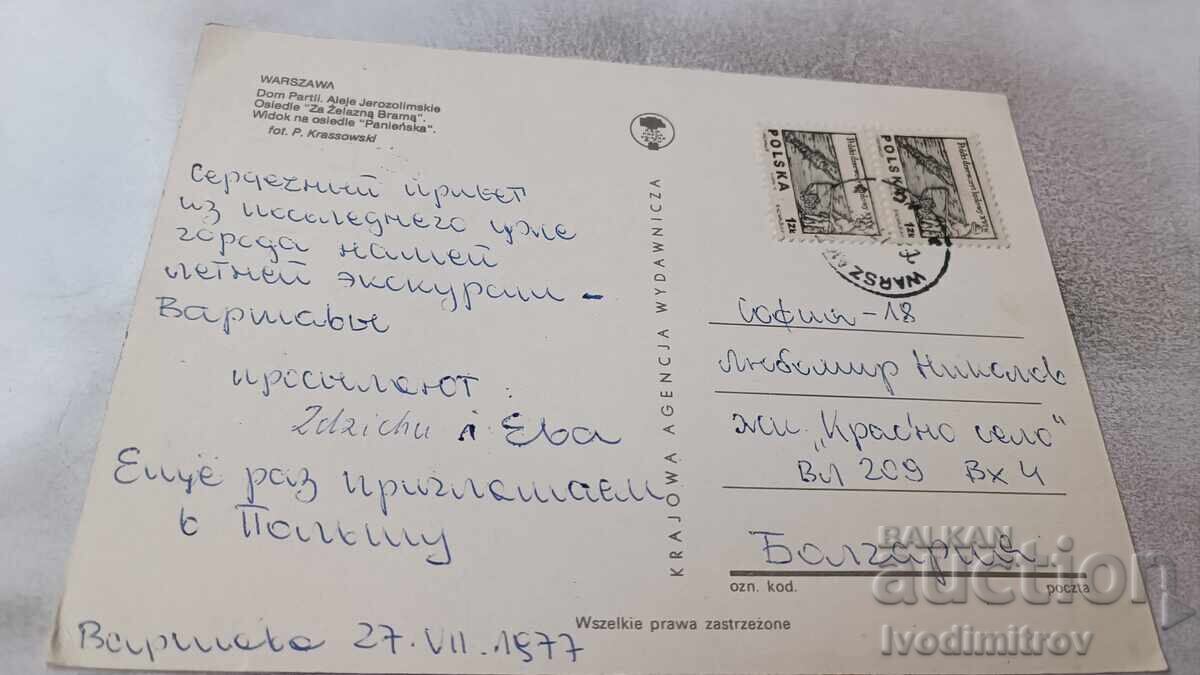 WARSZAWA
Dom Partii. Aleje Jerozolimskie
Osiedle "Za Żelazną Bramą".
Widok na osiedle "Panieńska".
fot. P. Krassowski
Сердечний привет
из последнего уже
города нашей
летней экскурсии -
Варшавы
просылают :
Zdzichu i Ева
Ещё раз приглашаем
в Польшу
Варшава 27.VII.1977
KRAJOWA AGENCJA WYDAWNICZA
POLSKA
1ZŁ
POLSKA
1ZŁ
WARSZ
София - 18
Любомир Николов
жк. „Красно село"
Вл 209 Вх 4
Болгария
ozn. kod.
poczta
Wszelkie prawa zastrzeżone
BALKAN
auction
Ivodimitrov